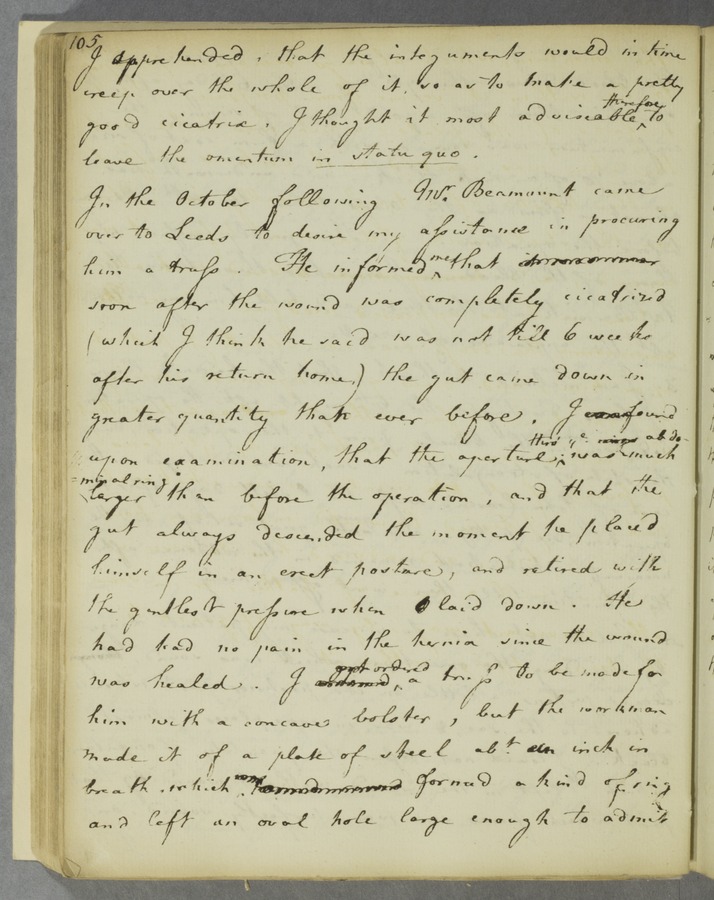 105
I apprehended, that the integuments would in time
creep over the whole of it, so as to make a pretty
good cicatrix. I thought it most adviseable therefore to
leave the omentum in statu quo.
In the October following Mr. Beamount came
over to Leeds to desire my assistance in procuring
him a truss. He informed me that
soon after the wound was completely cicatrized
(which I think he said was not till 6 weeks
after his return home,) the gut came down in
greater quantity than ever before. I found
upon examination, that the aperture thro' ye abdo-
=minal ring was much
larger than before the operation, and that the
gut always descended the moment he placed
himself in an erect posture, and retired with
the gentlest pressure when laid down. He
had had no pain in the hernia since the wound
was healed. I got ordered a truss to be made for
him with a concave bolster, but the workman
made it of a plate of steel abt. an inch in
breath, which formed a kind of ring
and left an oval hole large enough to admit